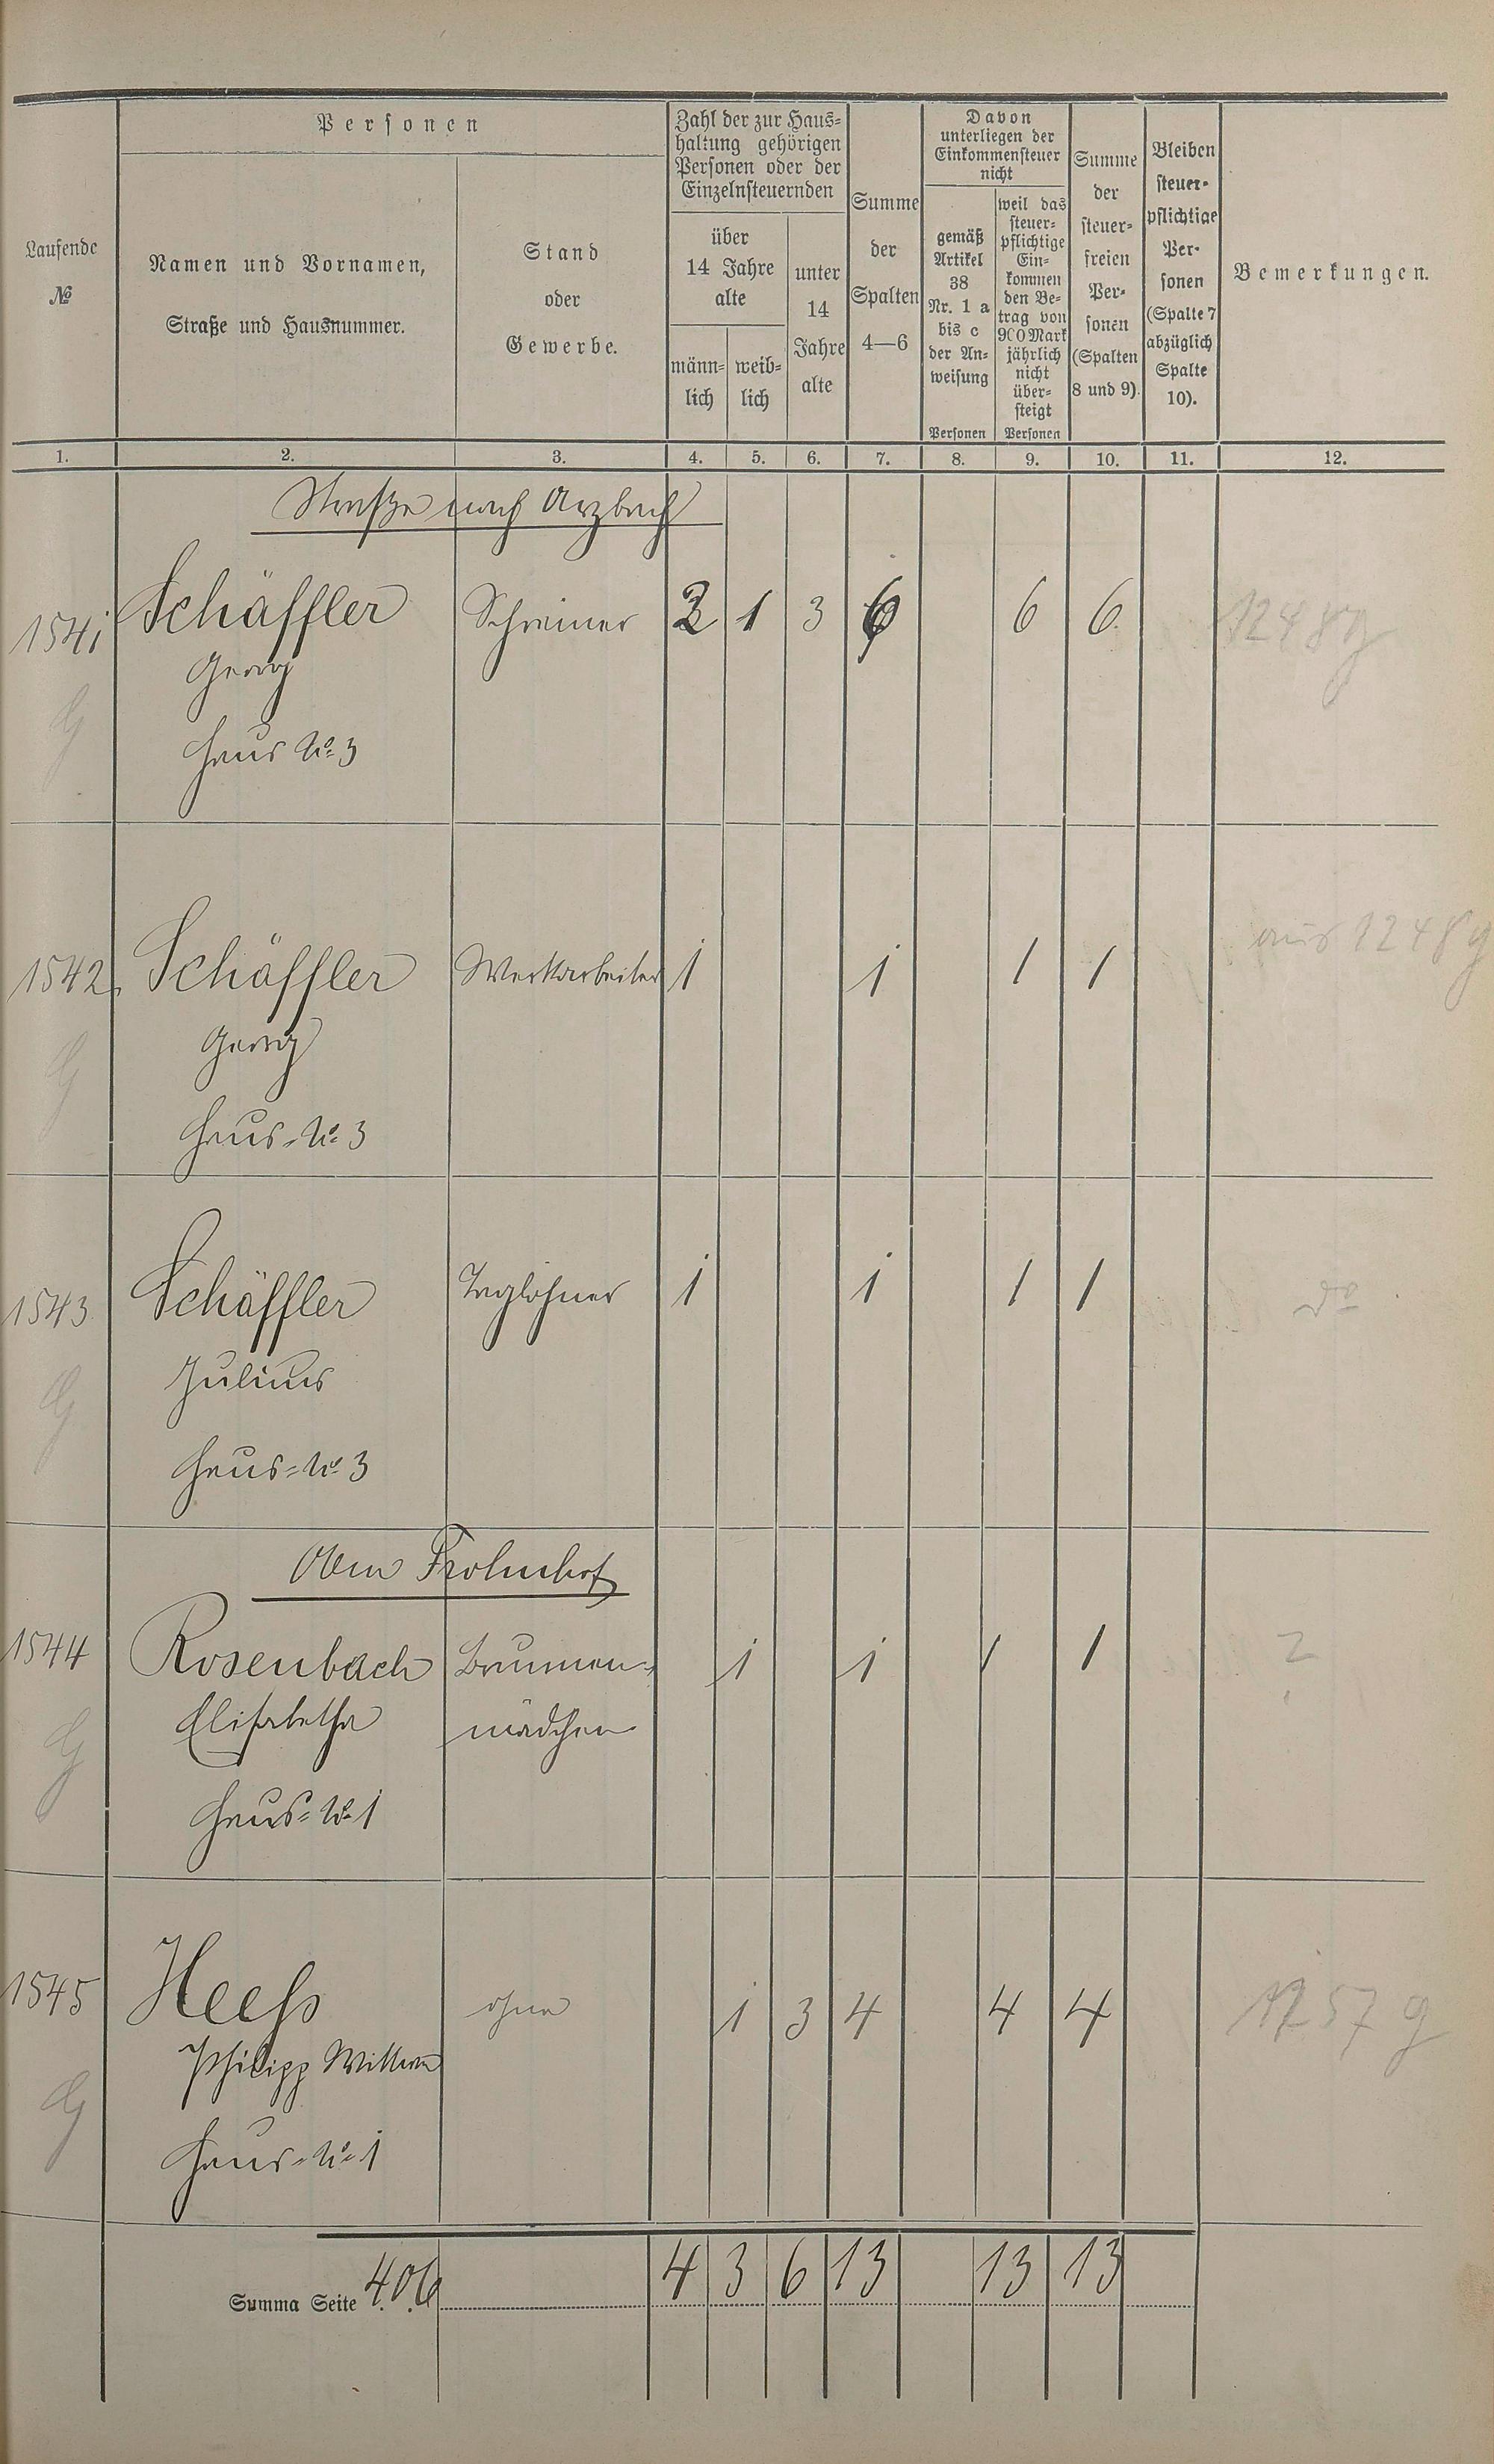 Personen
Zahl der zur Haus-
haltung gehörigen
Personen oder der
Einzelnsteuernden
Davon
unterliegen der
Einkommensteuer
nicht
Laufende
№
Namen und Vornamen,
Straße und Hausnummer.
Stand
oder
Gewerbe.
über
14 Jahre
alte
männ-
lich
weib-
lich
unter
14
Jahre
alte
Summe
der
Spalten
4—6
gemäß
Artikel
38
Nr. 1 a
bis c
der An-
weisung
Personen
weil das
steuer-
pflichtige
Ein-
kommen
den Be-
trag von
900 Mark
jährlich
nicht
über-
steigt
Personen
Summe
der
steuer-
freien
Per-
sonen
(Spalten
8 und 9).
Bleiben
steuer-
pflichtige
Per-
sonen
(Spalte 7
abzüglich
Spalte
10).
Bemerkungen.
1. 2. 3. 4. 5. 6. 7. 8. 9. 10. 11. 12.
Straße nach Arzbach
1541 Schäffler Schreiner 2 1 3 6 6 6 1248g
Georg
G
Haus № 3
1542. Schäffler Werkarbeiter 1 1 1 1 aus 1248g
Georg
G
Haus-№ 3
1543 Schäffler Taglöhner 1 1 1 1 do
Julius
G
Haus-№ 3
Oben Frohnhof
1544 Rosenbach Brunnen- 1 1 1 1 ?
Elisabetha mädchen
G
Haus-№ 1
1545 Heeß ohne 1 3 4 4 4 1257 g
Philipp Wittwe
G
Haus-№ 1
Summa Seite 406 4 3 6 13 13 13